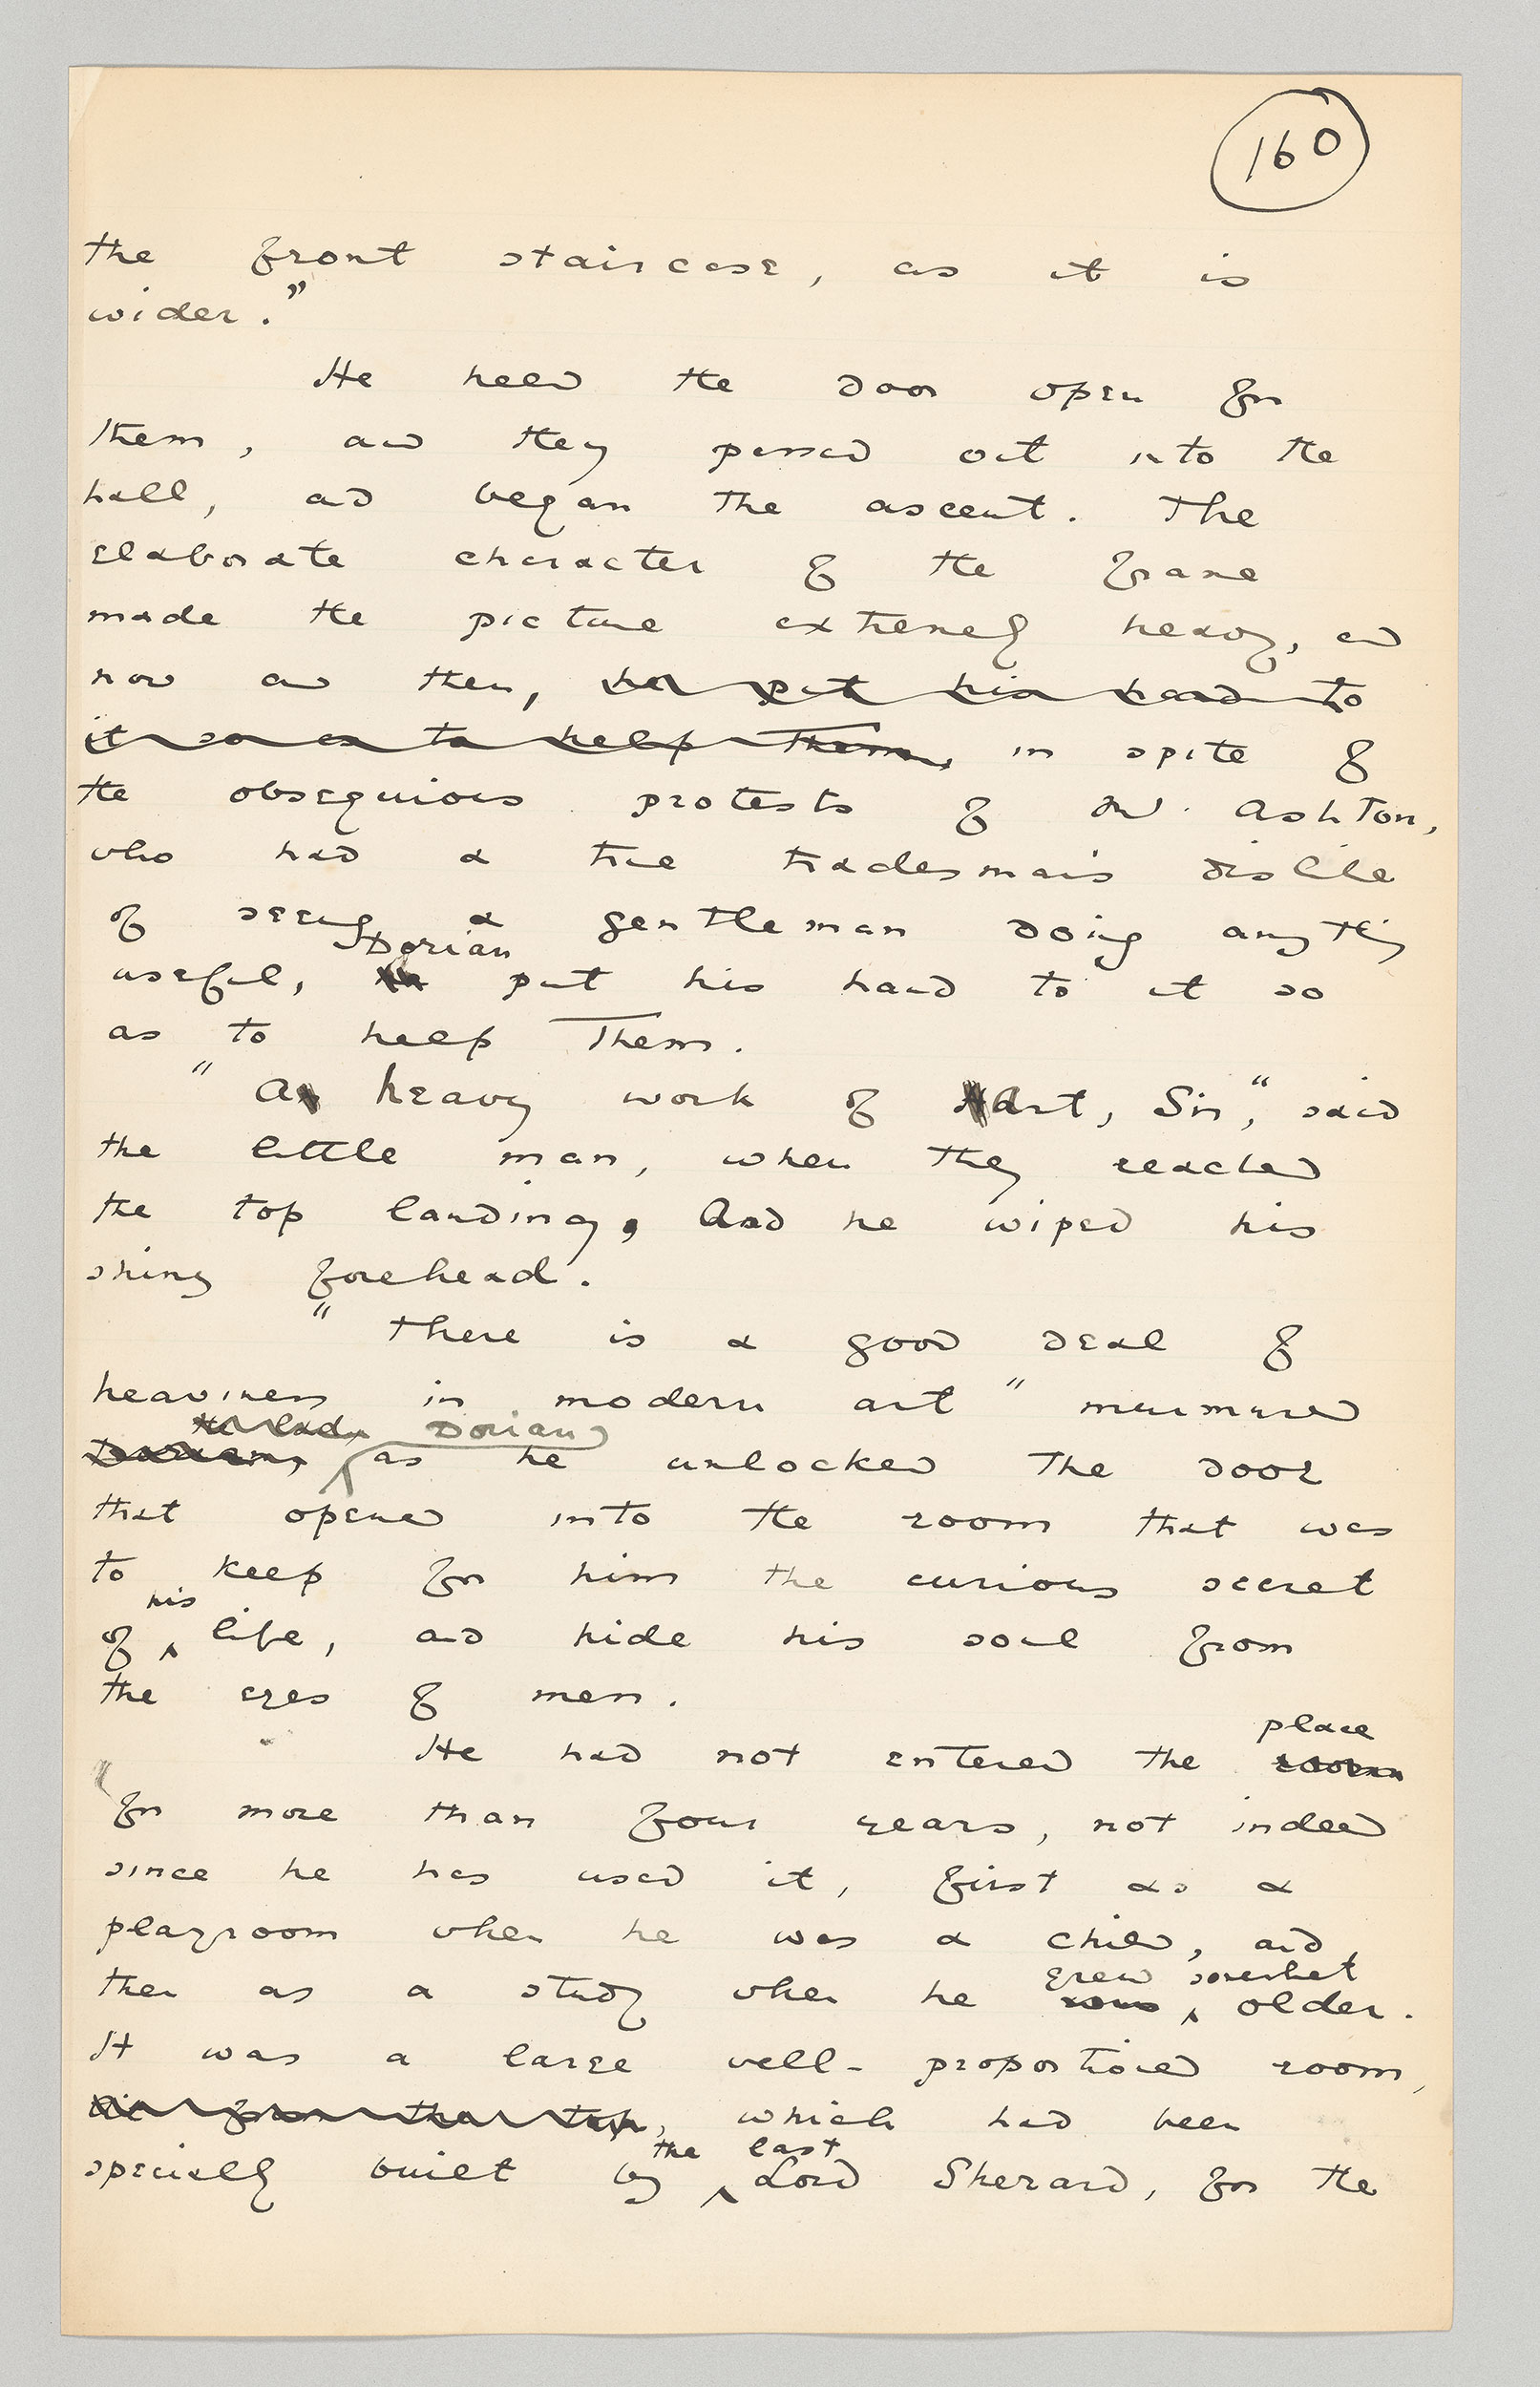 160
the front staircase, as it is
wider."
He held the door open for
them, and they passed out into the
hall, and began the ascent. The
elaborate character of the frame
made the picture extremely heavy, and
now and then, he put his hand to
it so as to help them, in spite of
the obsequious protests of Mr. Ashton,
who had a true tradesman's dislike
of seeing a gentleman doing anything
Dorian
useful, he put his hand to it so
as to help them.
"A heavy work of Art, Sir," said
the little man, when they reached
the top landing, And he wiped his
shiny forehead.
"There is a good deal of
heaviness in modern art" murmured
the lad, Dorian
Dorian, as he unlocked the door
that opened into the room that was
to keep for him the curious secret
his
of ‸ life, and hide his soul from
the eyes of men.
place
He had not entered the room
for more than four years, not indeed
since he has used it, first as a
playroom when he was a child, and
grew somewhat
then as a study when he was ‸ older.
It was a large well-proportioned room,
lit from the top, which had been
the last
specially built by ‸ Lord Sherard, for the